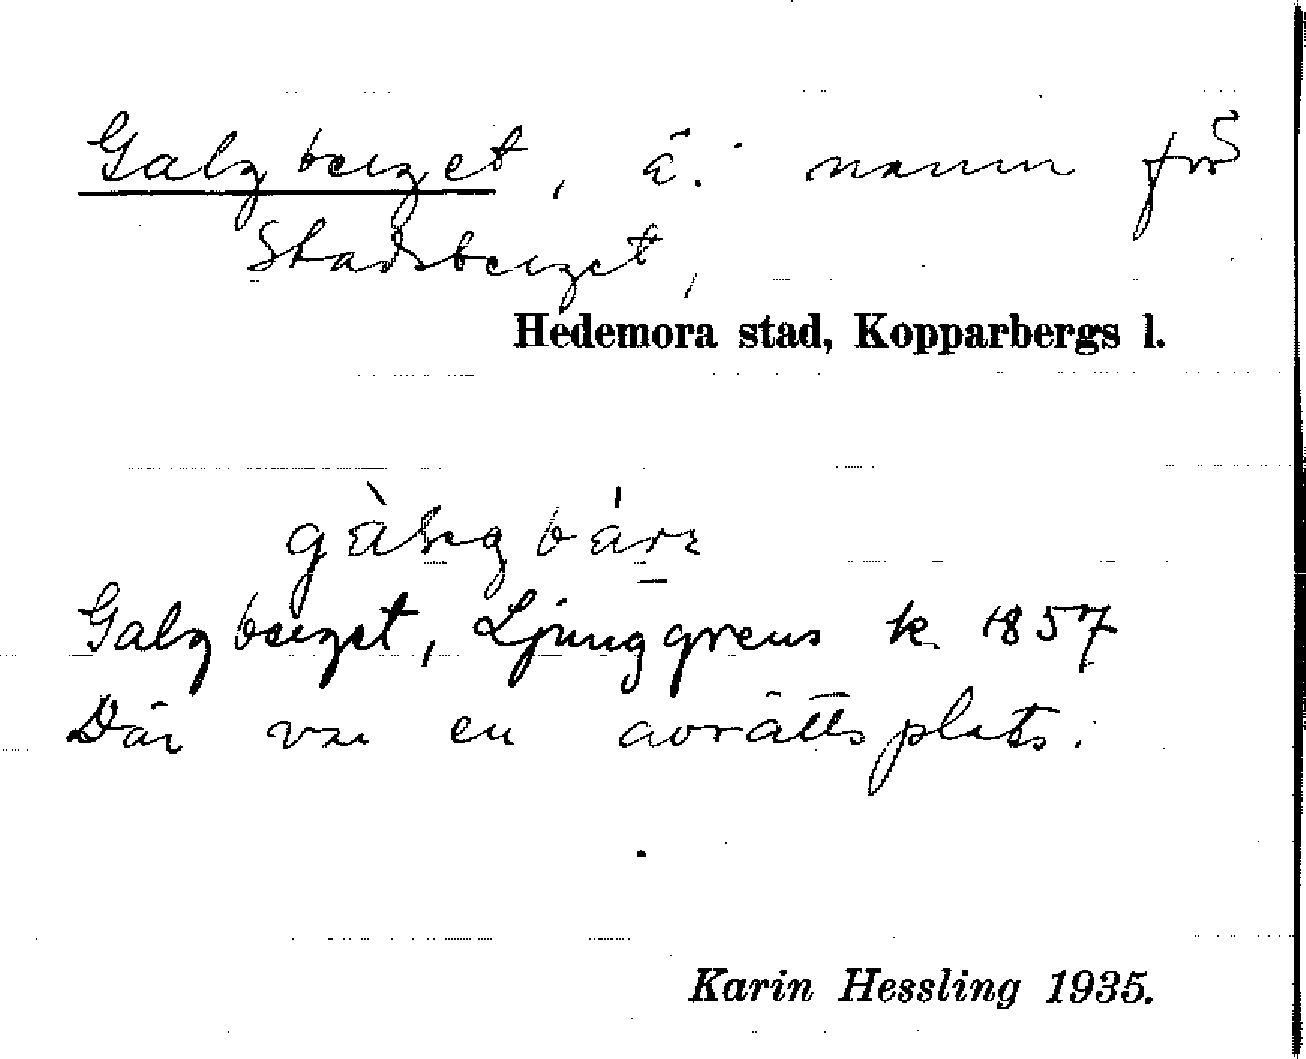 Galgberget, ä. namn för
Stadsberget,
Hedemora stad, Kopparbergs l.
Galgberget, Ljunggrens k 1857
Där var en avrättsplats.
Karin Hessling 1935.